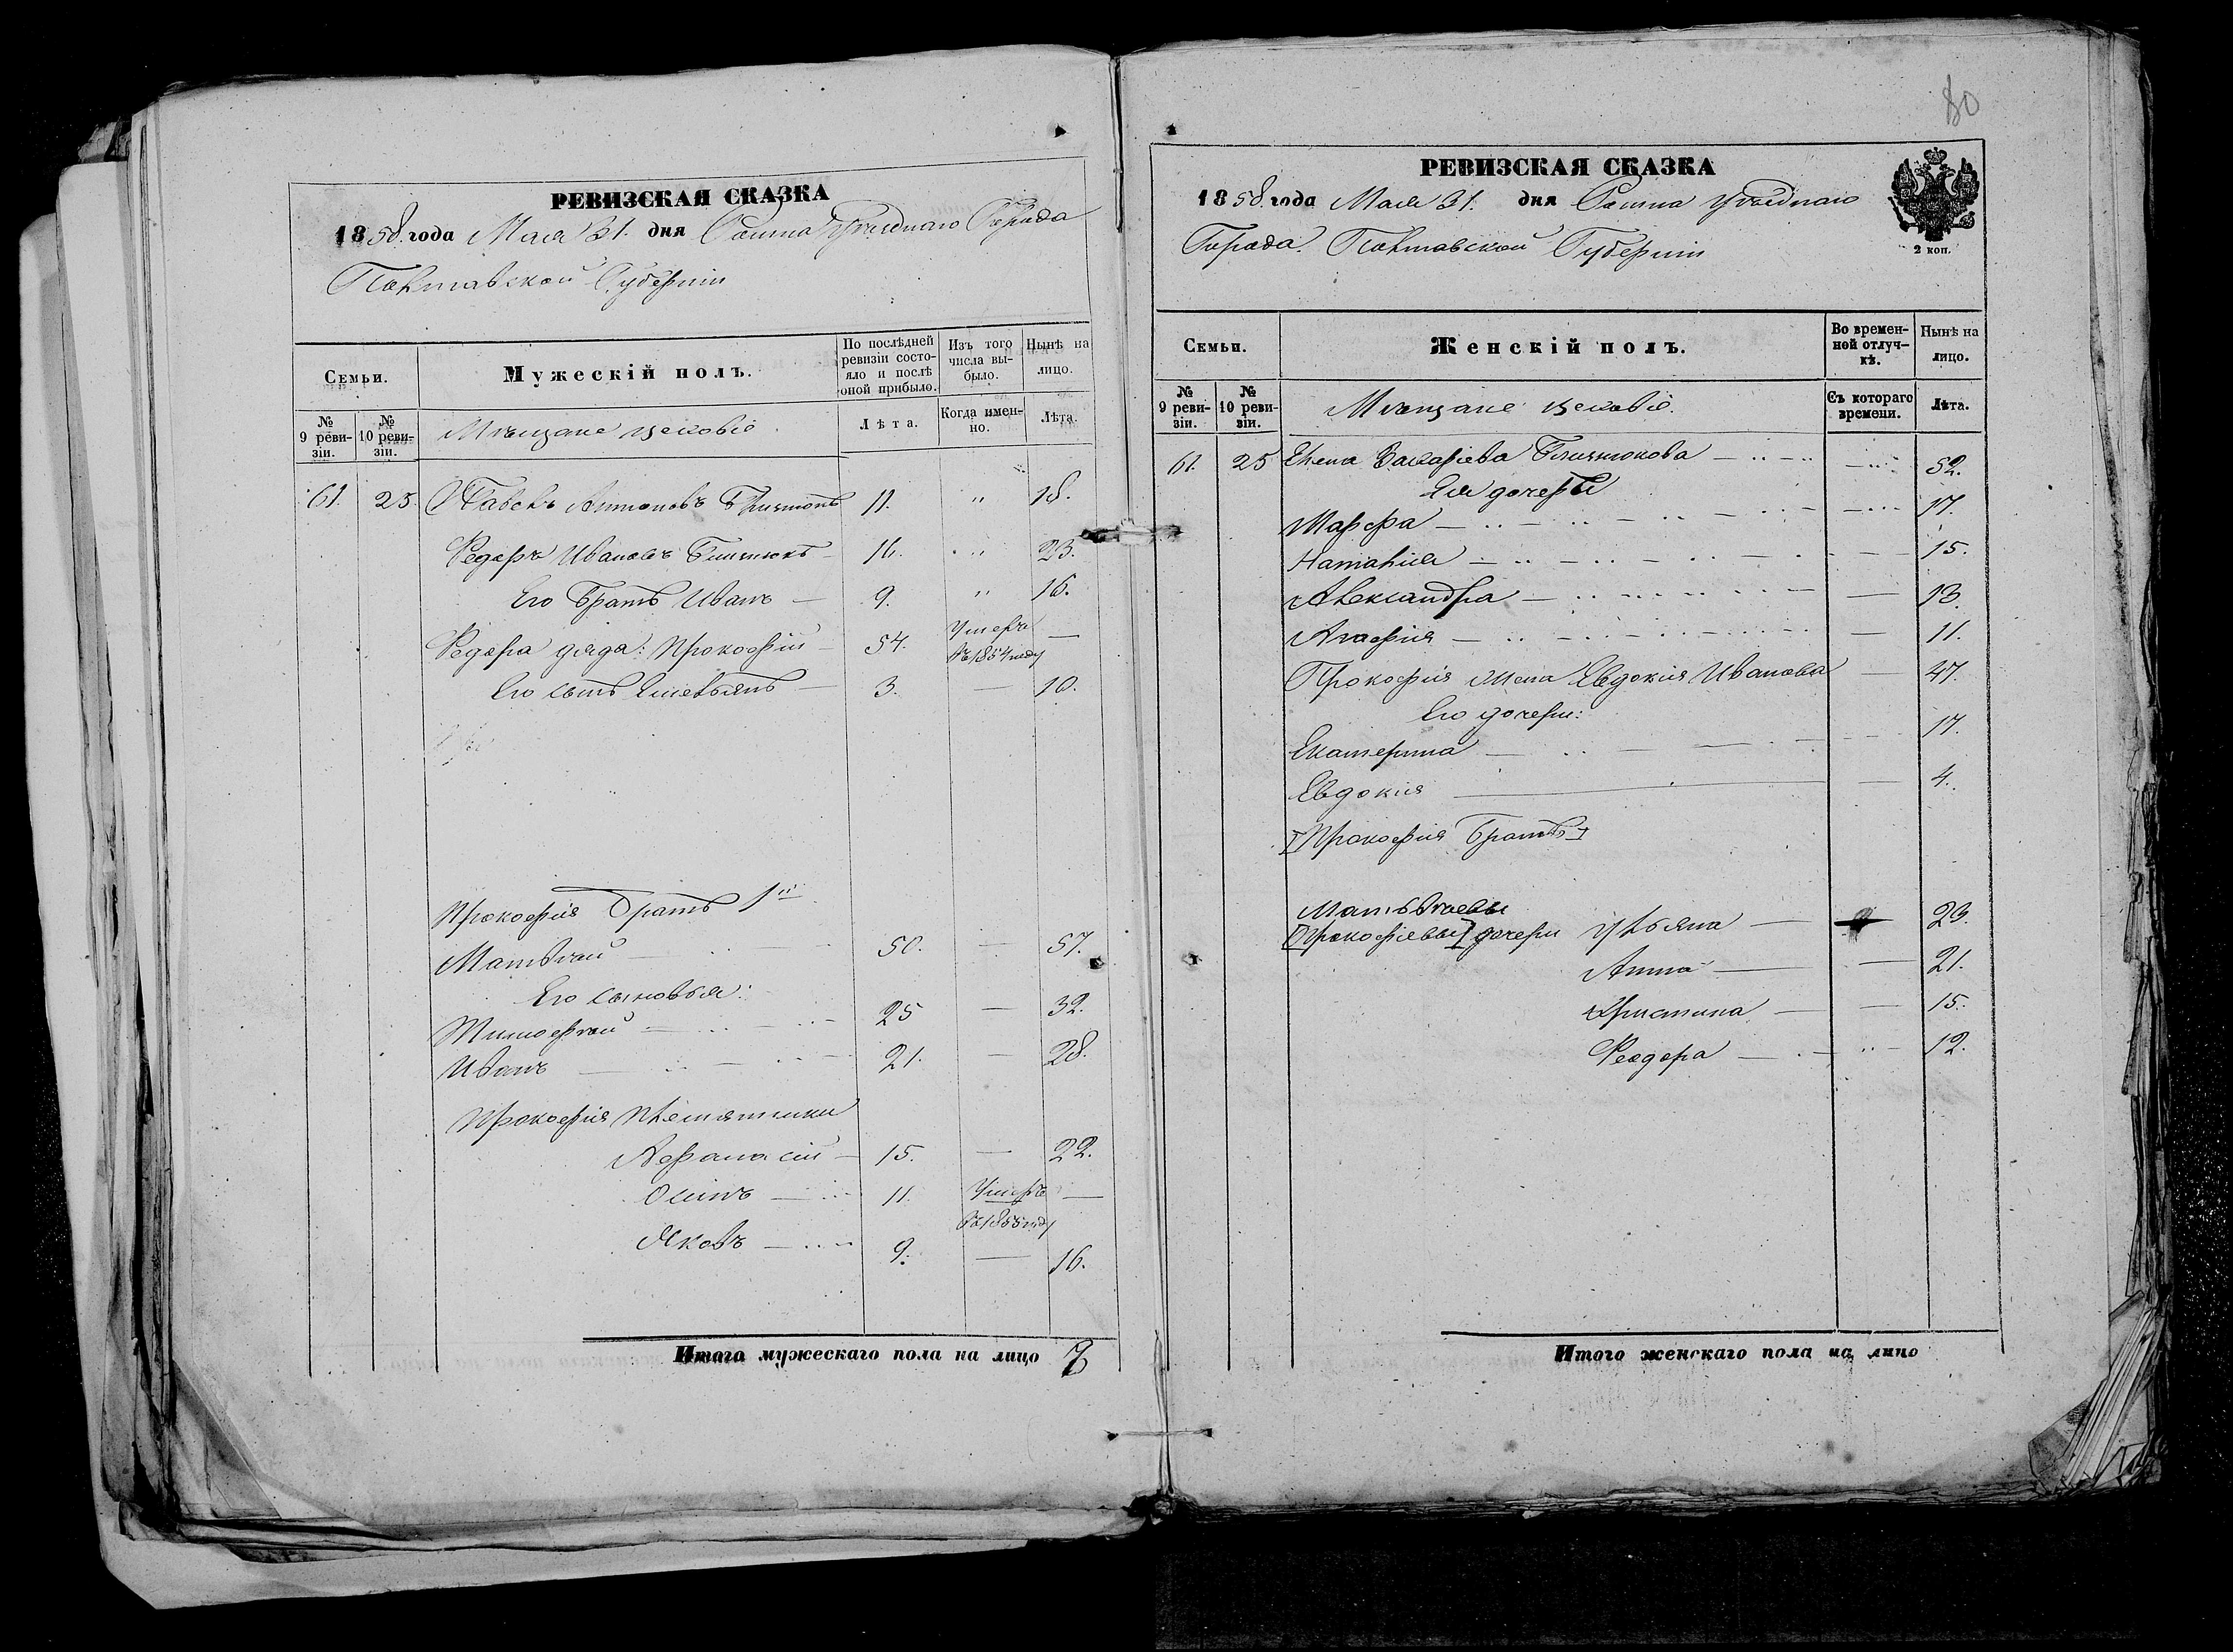 РЕВИЗСКАЯ СКАЗКА
1858 года Мая 31 дня уѣзднаго Города
Полтавской Губерніи
Семьи.
Мужескій полъ.
По послѣдней ревизіи состояло и послѣ оной прибыло.
Изъ того числа выбыло.
Нынѣ на лицо.
№ 9 ревизіи.
№ 10 ревизіи.
Мѣщане
Лѣта.
Когда именно.
Лѣта.
61. 25. Павелъ Антоновъ 11. " 18.
Федоръ Ивановъ 16. " 23.
Его братъ Иванъ — 9. " 16.
Федора дядя: Прокофій — 54. Умеръ въ 1854 году —
Его сынъ Емельянъ — 3. — 10.
Прокофія братъ 1й
Матвѣй — 50. — 57.
Его сыновья:
Тимофѣй — 25 — 32.
Иванъ — 21. — 28.
Прокофія племянники
Афанасій — 15. — 22.
Осипъ — 11. Умеръ въ 1855 году —
Яковъ — 9. — 16.
Итого мужескаго пола на лицо
80
РЕВИЗСКАЯ СКАЗКА
1858 года Мая 31. дня уѣзднаго
Города Полтавской Губерніи
2 коп.
Семьи.
Женскій полъ.
Во временной отлучкѣ.
Нынѣ на лицо.
№ 9 ревизіи.
№ 10 ревизіи.
Мѣщане
Съ котораго времени.
Лѣта.
61. 25 Елена Захарьева — 52.
Ея дочери
Марфа — 17.
Наталія — 15.
Александра — 13.
Агафія — 11.
Прокофія жена Евдокія Иванова — 47.
Его дочери:
Екатерина — 17.
Евдокія — 4.
[Прокофія братъ]
Матвѣевы
[Прокофіевы] дочери Ульяна — 23.
Анна — 21.
Христина — 15.
Феодора — 12.
Итого женскаго пола на лицо